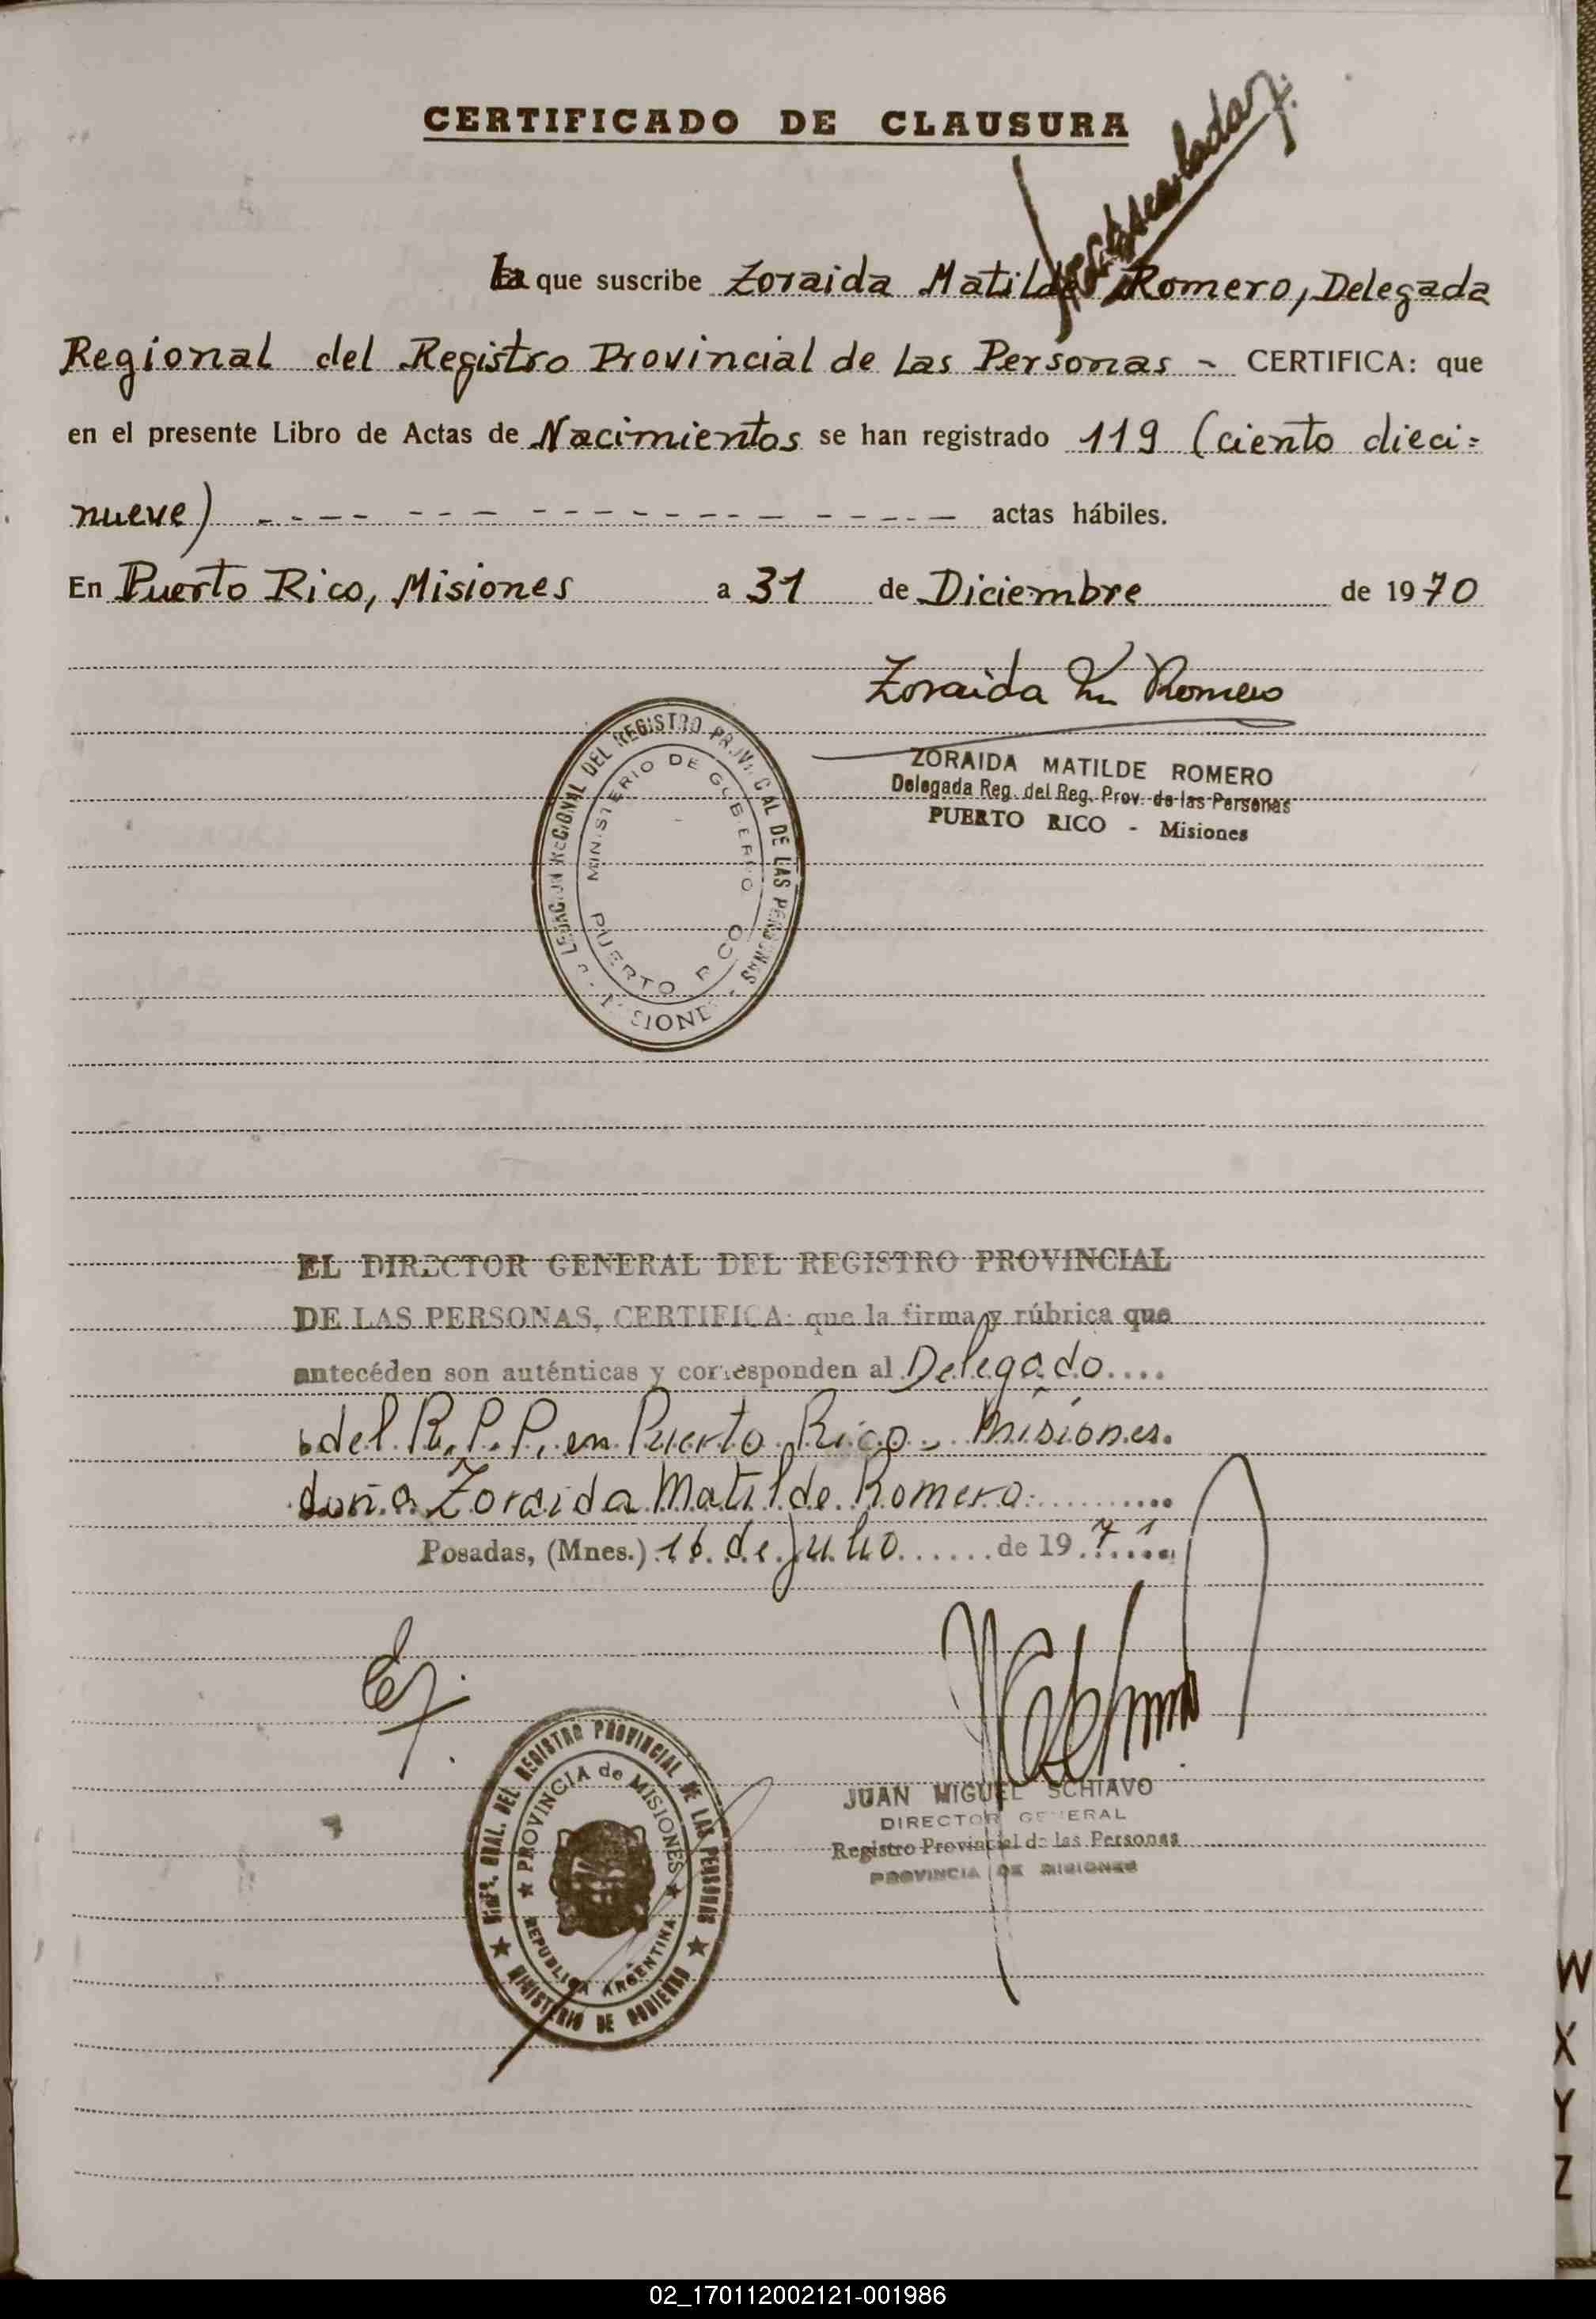 CERTIFICADO DE CLAUSURA
La que suscribe Zoraida Matilde Romero, Delegada
Regional del Registro Provincial de las Personas - CERTIFICA: que
en el presente Libro de Actas de Nacimientos se han registrado 119 (ciento dieci=
nueve) actas hábiles.
En Puerto Rico, Misiones a 31 de Diciembre de 1970
Zoraida M Romero
DELEGACION REGIONAL DEL REGISTRO PROVINCIAL DE LAS PERSONAS
MINISTERIO DE GOBIERNO
PUERTO RICO
MISIONES
ZORAIDA MATILDE ROMERO
Delegada Reg. del Reg. Prov. de las Personas
PUERTO RICO - Misiones
EL DIRECTOR GENERAL DEL REGISTRO PROVINCIAL
DE LAS PERSONAS, CERTIFICA: que la firma y rúbrica que
antecéden son auténticas y corresponden al Delegado....
del R.P.P. en Puerto Rico - Misiones.
doña Zoraida Matilde Romero..........
Posadas, (Mnes.) 16 de Julio ...... de 1971
DIREC. GRAL. DEL REGISTRO PROVINCIAL DE LAS PERSONAS
PROVINCIA de MISIONES
REPUBLICA ARGENTINA
MINISTERIO DE GOBIERNO
JUAN MIGUEL SCHIAVO
DIRECTOR GENERAL
Registro Provincial de las Personas
PROVINCIA DE MISIONES
W
X
Y
Z
02_170112002121-001986